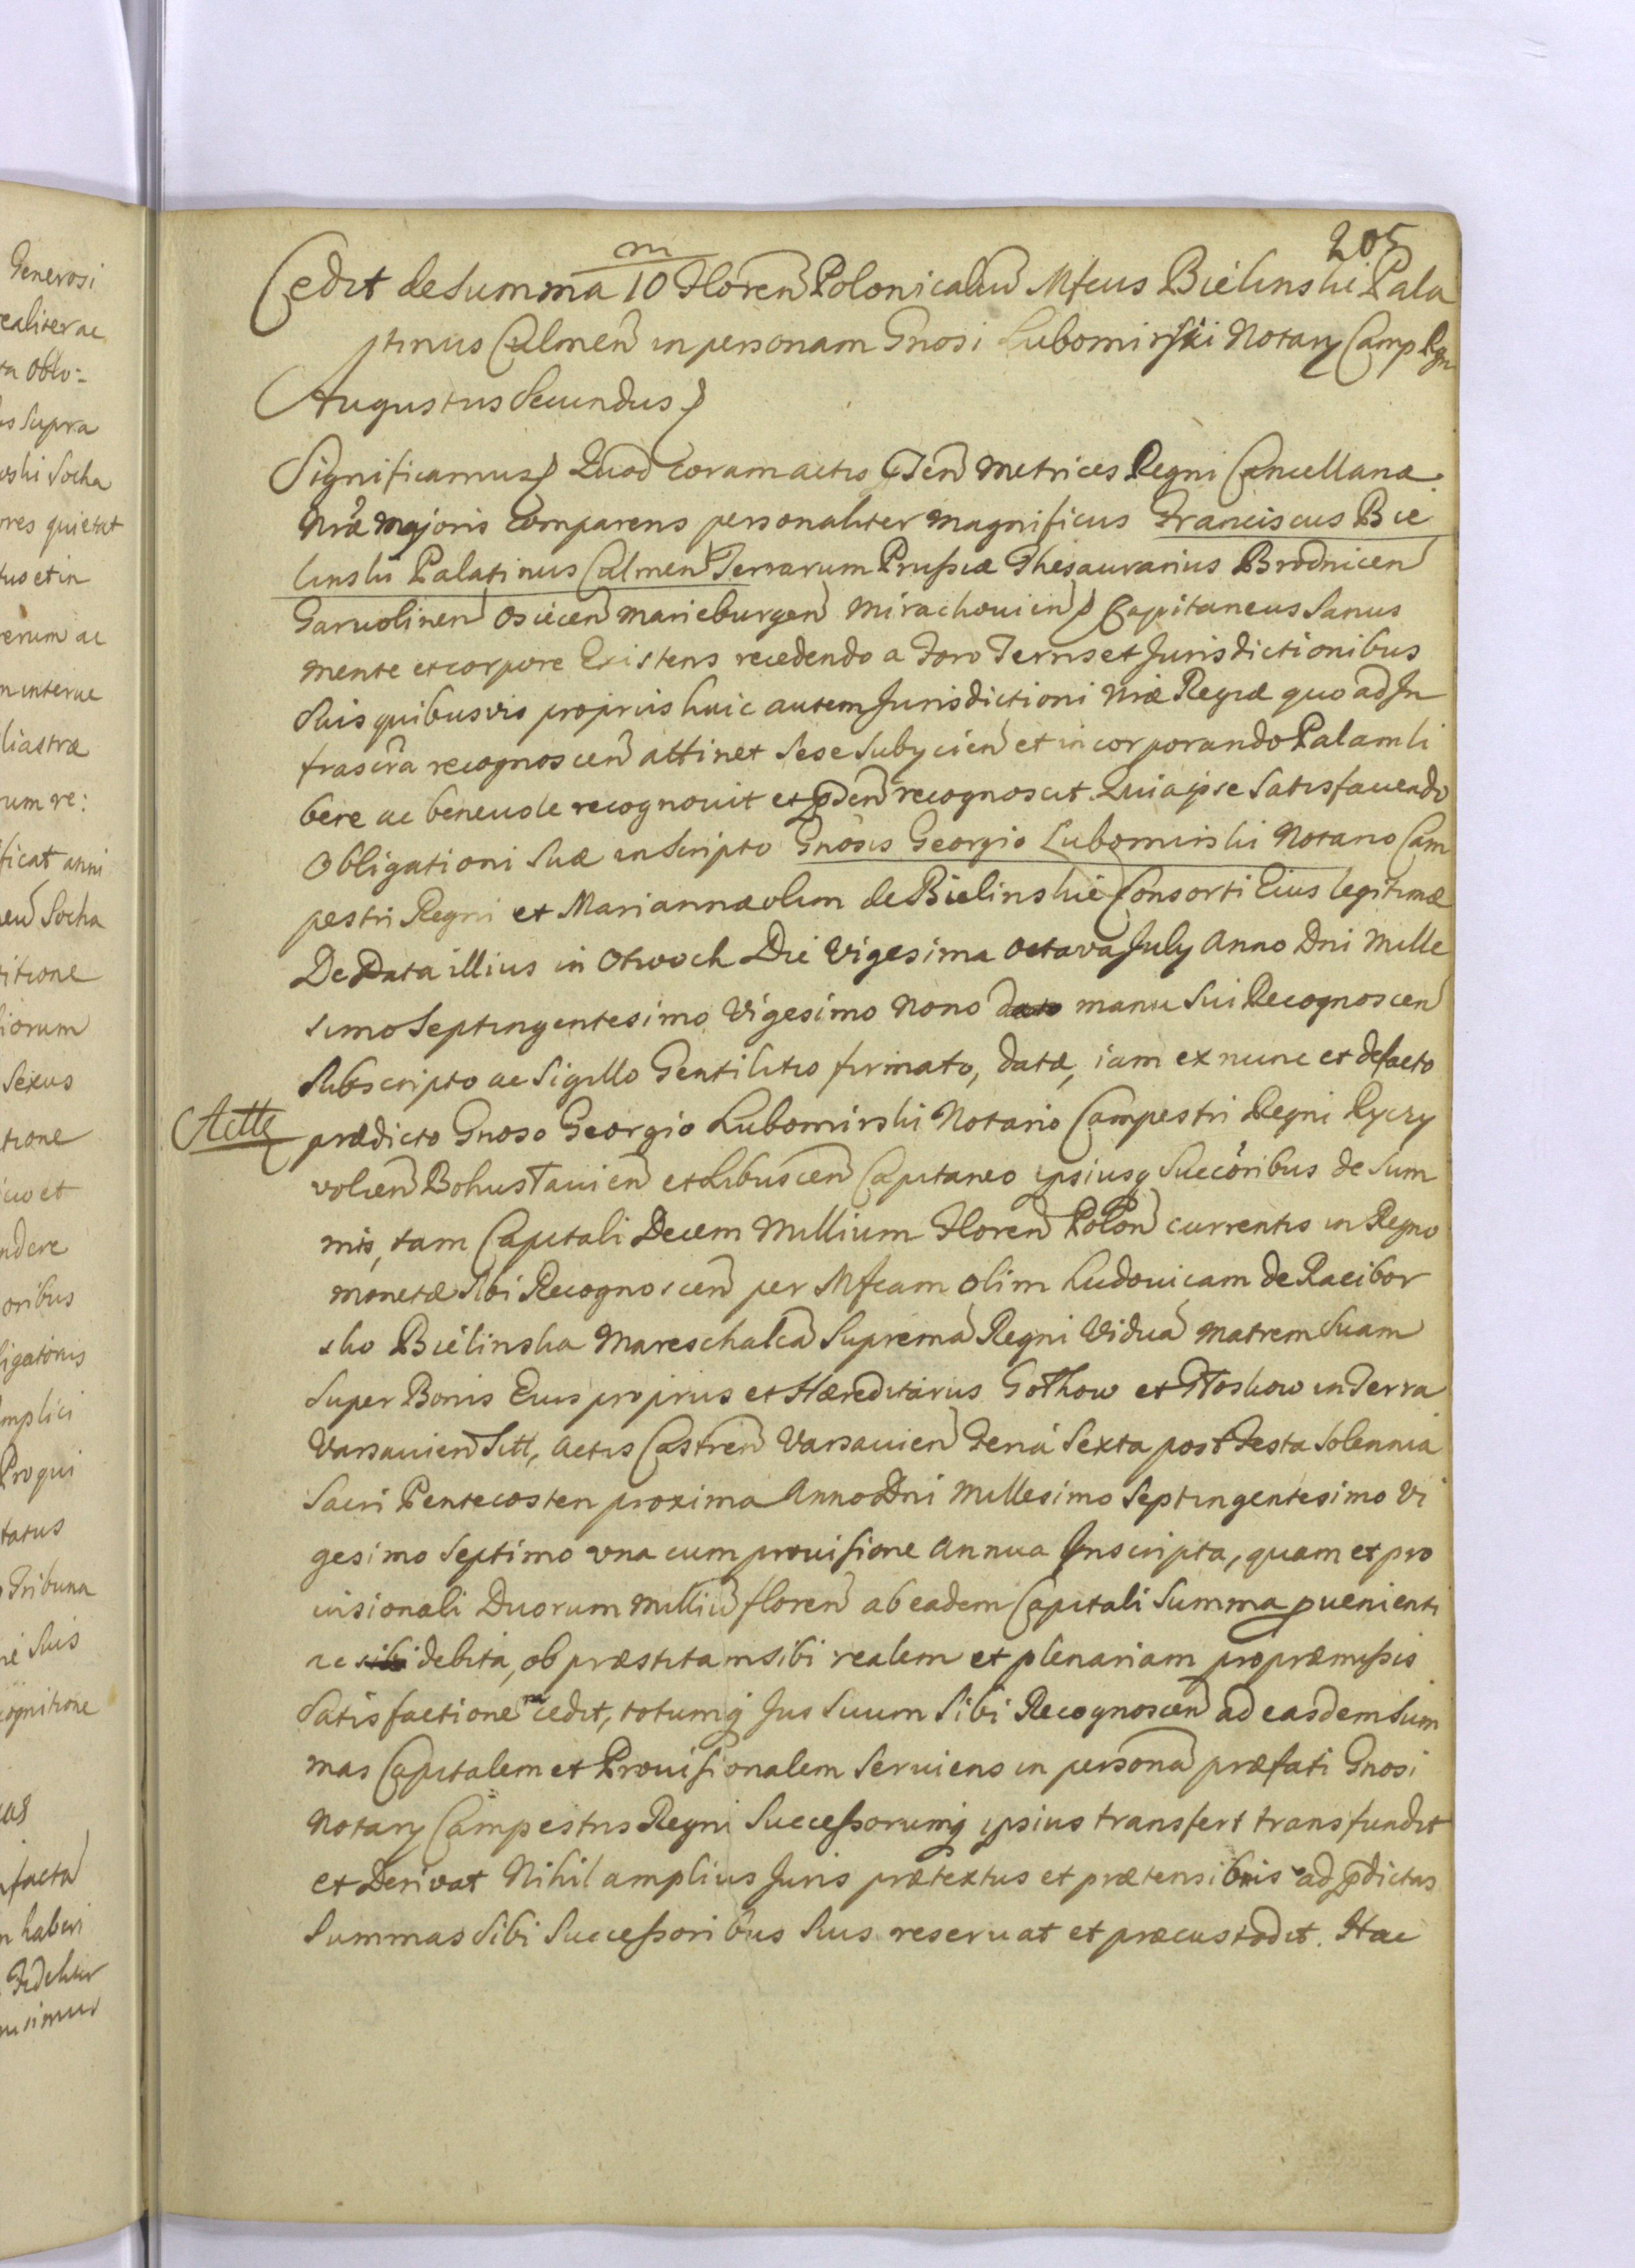 205
m
Cedit de Summa 10 Floren Polonicaliu Mfcus Bielinski Pala
tinus Culmen in personam Gnosi Lubomirski Notary Camp Rgn
Augustus Secundus
Significamus Quod coram actis Pten Metrices Regni Cancellariæ
Nræ Majoris comparens personaliter Magnificus Franciscus Bie
linski Palatinus Culmen Terrarum Prussiæ Thesaurarius Brodnicen
Garuolinen Osiecen Marieburgen Mirachouien Capitaneus Sanus
mente et corpore Existens recedendo a Foro Terris et Jurisdictionibus
Suis quibusvis proprijs huic autem Jurisdictioni Nræ Regiæ quo ad In
frascra recognoscen attinet Sese Subycien et incorporando Palam li
bere ac beneuole recognouit et pden recognoscit. Quia ipse Satisfaciendo
Obligationi Suæ in Scripto Gnosis Georgio Lubomirski Notario Cam
pestri Regni et Mariannæ olim de Bielinskie Consorti Eius legitimæ
De Data illius in Otwock Die Vigesima Octava July Anno Dni Mille
simo Septingentesimo Vigesimo Nono dato manu Sui Recognoscen
Subscripto ac Sigillo Gentilitio firmato, datæ, iam ex nunc et defacto
Actte
prædicto Gnoso Georgio Lubomirski Notario Campestri Regni Ryczy
volien Bohuslauien et Libuscen Capitaneo ipsiusq Succoribus de Sum
mis, tam Capitali Decem Millium Floren Polon currentis in Regno
monetæ Sibi Recognoscen per Mfcam olim Ludouicam de Racibor
sko Bielinska Mareschalca Suprema Regni Vidua Matrem Suam
Super Bonis Eius proprijs et Hæreditarijs Gothow et Ploskow in Terra
Varsauien Sitt, Actis Castren Varsauien Feria Sexta post Festa Solennia
Sacri Pentecosten proxima Anno Dni Millesimo Septingentesimo Vi
gesimo Septimo una cum prouisione Annua Inscripta, quam et pro
uisionali Duorum Milliu floren ab eadem Capitali Summa puenienti
ac sibi debita, ob præstitam sibi realem et plenariam pro præmissis
Satisfactionem cedit, totumq Jus Suum Sibi Recognoscen ad easdem Sum
mas Capitalem et Prouisionalem Seruiens in persona præfati Gnosi
Notary Campestris Regni Successorumq ipsius transfert transfundit
et Derivat Nihil amplius Juris prætextus et prætensionis ad pdictas
Summas Sibi Successoribus Suis reseruat et præcustodit. Hac